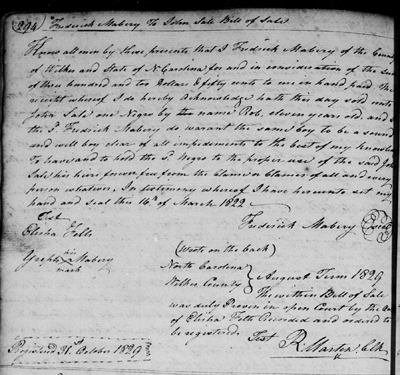 (294) Frederick Mabery To John Sale Bill of Sale
Know all men by these presents that I Fredrick Mabery of the County
of Wilkes and State of N. Carolina for and in consideration of the Sum
of three hundred and two Dollars & fifty cents to me in hand paid The
receipt whereof I do hereby Acknowledge hath this day sold unto
John Sale one Negro by the name Rob, eleven years old, and
the Sd. Fredrick Mabery do warant the same boy to be a sound
and well boy clear of all impediments to the best of my knowle
To have and to hold the Sd. Negro to the proper use of the said John
Sale his heirs forever free from the Claim or Claims of all and every
person whatever, In testimony whereof I have hereunto set my
hand and Seal this 16th of March 1822
Test
Frederick Mabery (Seal)
Elisha Fells
Joseph his Mabery
mark
(Wrote on the back)
North Carolina
Wilkes County
August Term 1829
The within Bill of Sale
was duly Proven in open Court by the
of Elisha Fells Recorded and ordered to
be registered Test
R. Martin, Clk
Registered 31st October 1829